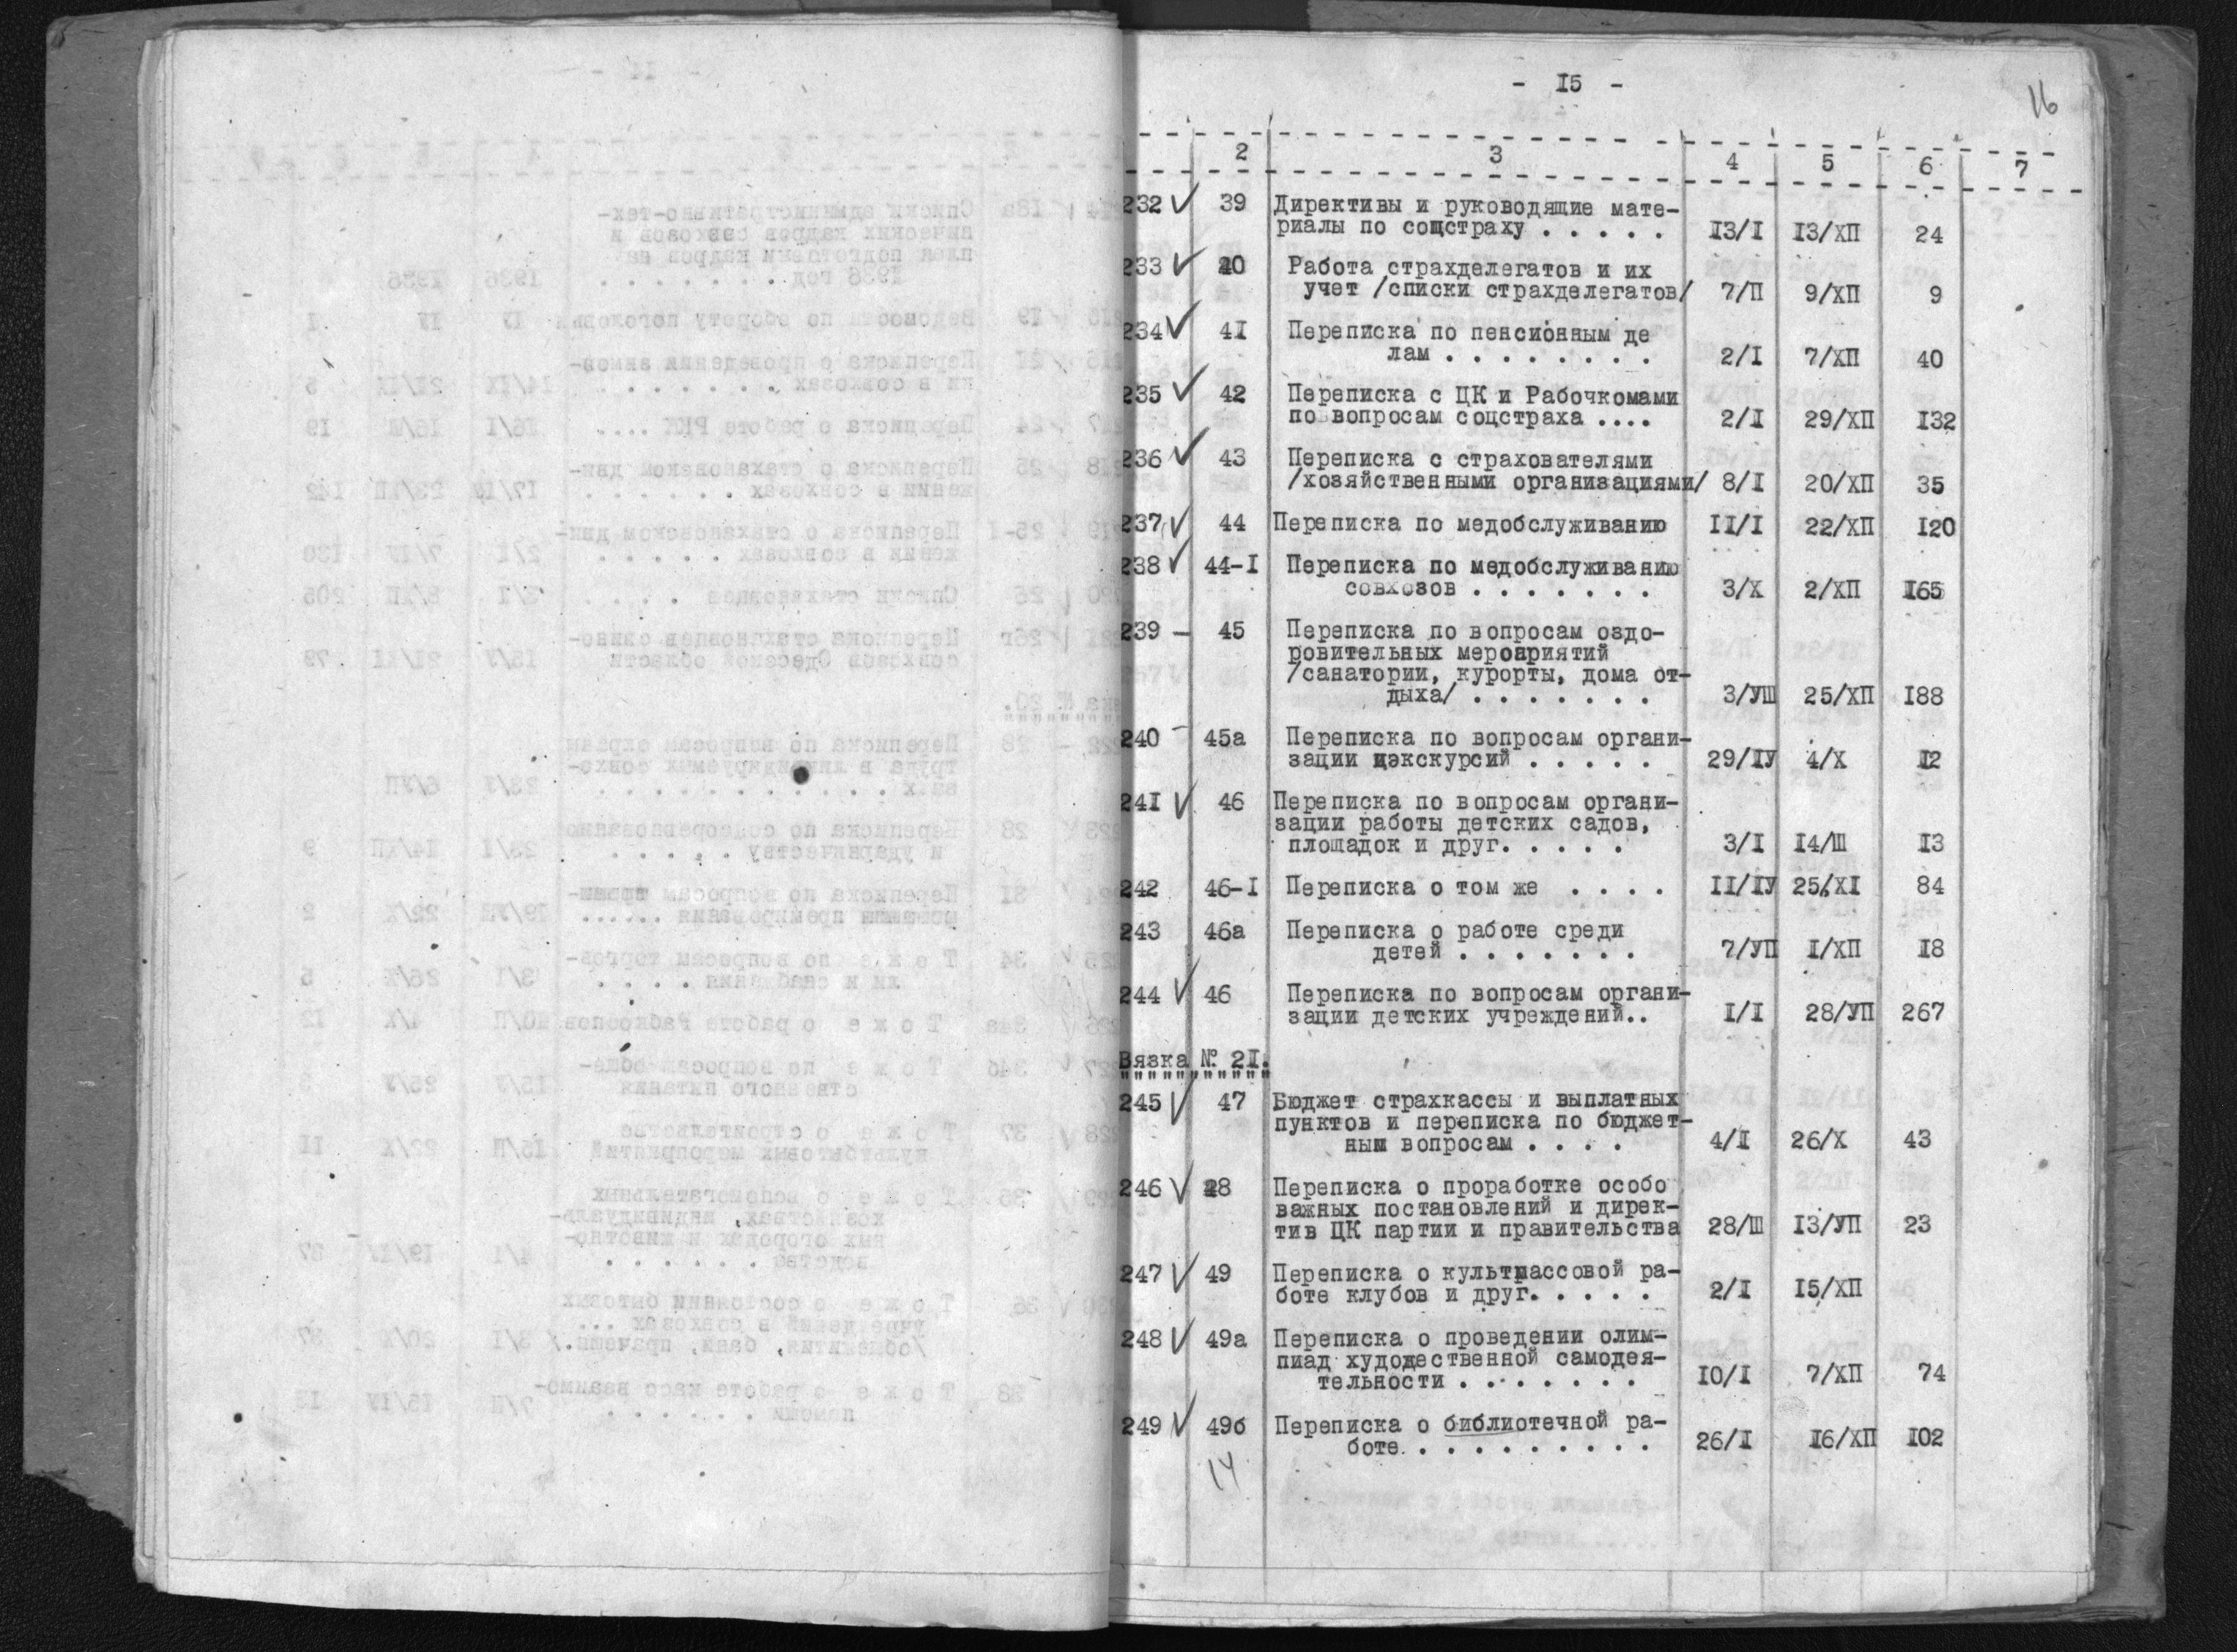 - I5 -
16
2 3 4 5 6 7
232 39 Директивы и руководящие мате-
риалы по соцстраху . . . . . I3/I I3/ХП 24
233 40 Работа страхделегатов и их
учет /списки страхделегатов/ 7/П 9/ХП 9
234 4I Переписка по пенсионным де
лам . . . . . . . . 2/I 7/ХП 40
235 42 Переписка с ЦК и Рабочкомами
по вопросам соцстраха .... 2/I 29/ХП I32
236 43 Переписка с страхователями
/хозяйственными организациями/ 8/I 20/ХП 35
237 44 Переписка по медобслуживанию II/I 22/ХП I20
238 44-I Переписка по медобслуживанию
совхозов . . . . . . . 3/Х 2/ХП I65
239 - 45 Переписка по вопросам оздо-
ровительных мероприятий
/санатории, курорты, дома от-
дыха/ . . . . . . . 3/УШ 25/ХП I88
240 - 45а Переписка по вопросам органи-
зации экскурсий . . . . . 29/IУ 4/Х I2
24I 46 Переписка по вопросам органи-
зации работы детских садов,
площадок и друг. . . . . 3/I I4/Ш I3
242 46-I Переписка о том же . . . . II/IУ 25/XI 84
243 46а Переписка о работе среди
детей . . . . . . . 7/УП I/ХП I8
244 46 Переписка по вопросам органи-
зации детских учреждений.. I/I 28/УП 267
Вязка № 2I.
245 47 Бюджет страхкассы и выплатных
пунктов и переписка по бюджет-
ным вопросам . . . . 4/I 26/Х 43
246 48 Переписка о проработке особо
важных постановлений и дирек-
тив ЦК партии и правительства 28/Ш I3/УП 23
247 49 Переписка о культмассовой ра-
боте клубов и друг. . . . . 2/I I5/ХП
248 49а Переписка о проведении олим-
пиад художественной самодея-
тельности . . . . . . . IО/I 7/ХП 74
249 49б Переписка о библиотечной ра-
боте. . . . . . . . . 26/I I6/ХП I02
14